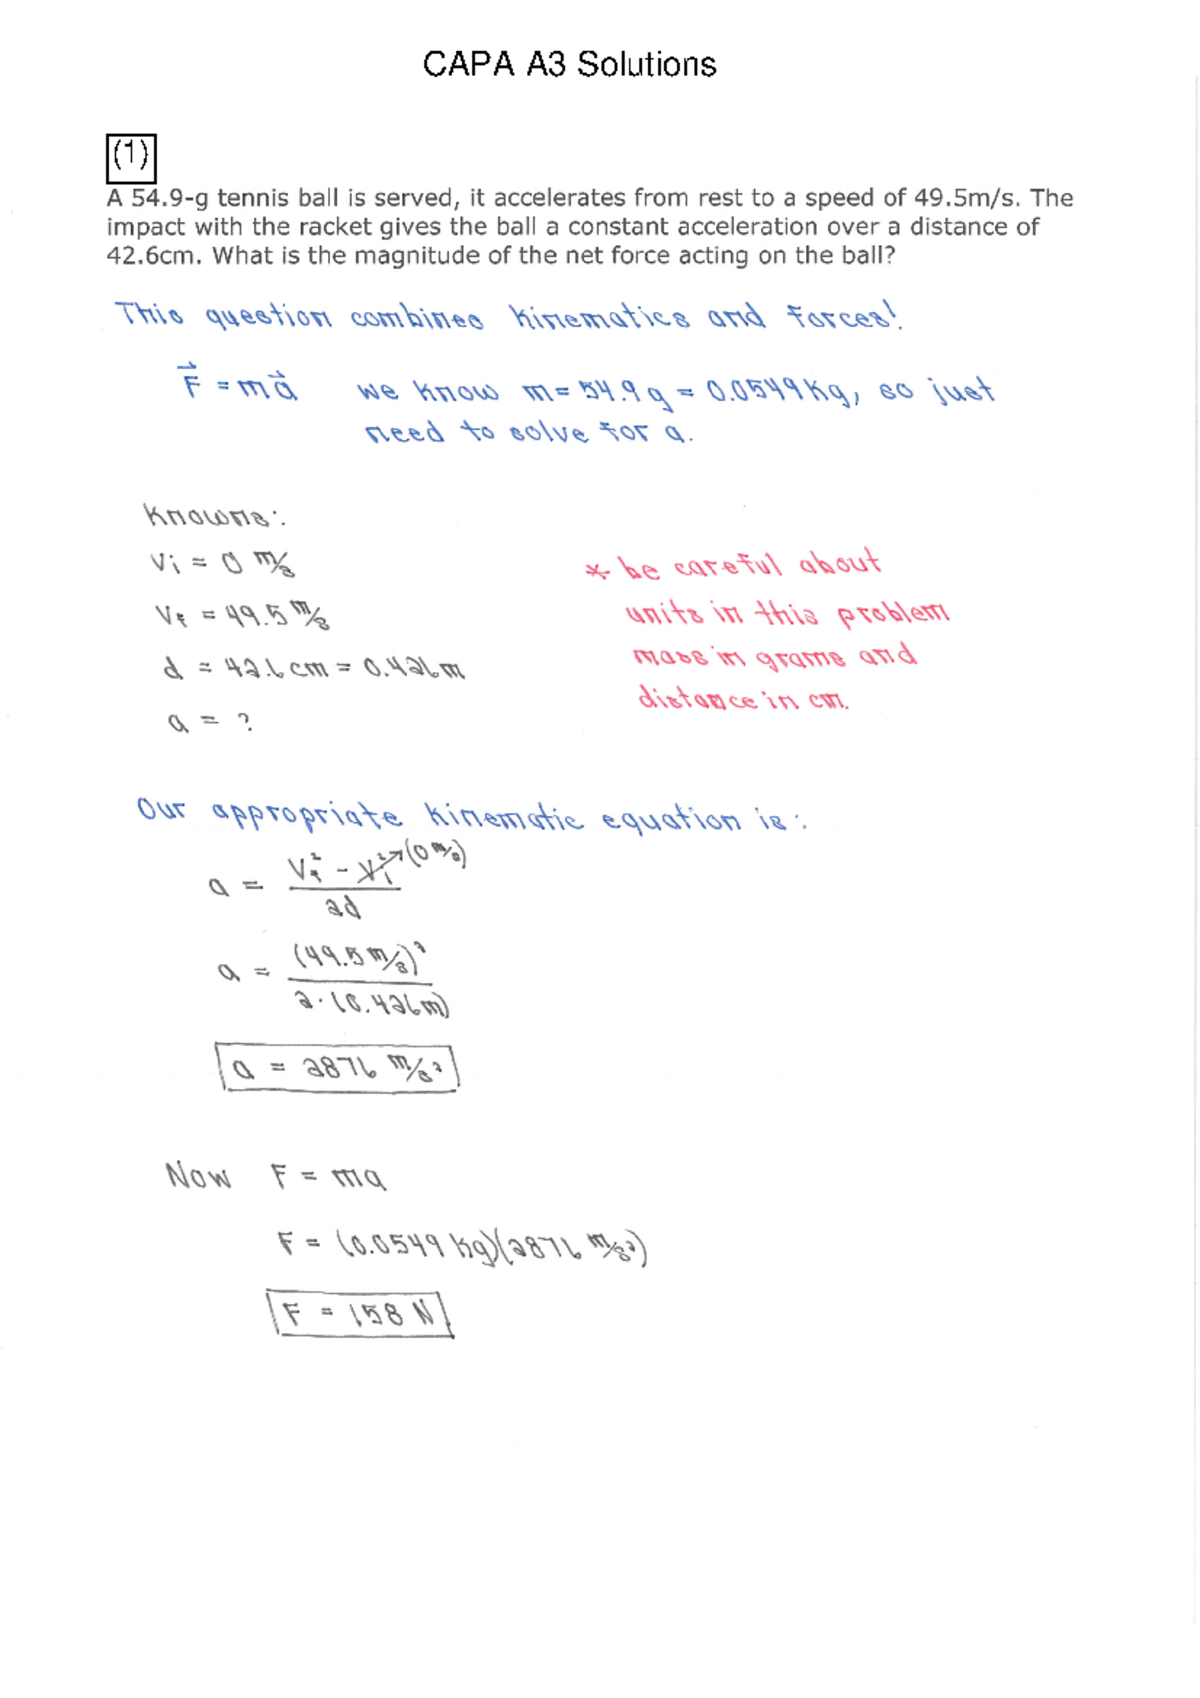 CAPA A3 Solutions
(1)
A 54.9-g tennis ball is served, it accelerates from rest to a speed of 49.5m/s. The
impact with the racket gives the ball a constant acceleration over a distance of
42.6cm. What is the magnitude of the net force acting on the ball?
This question combines kinematics and forces!
F⃗ = ma⃗ we know m = 54.9 g = 0.0549 kg, so just
need to solve for a.
Knowns:
Vi = 0 m/s
* be careful about
Vf = 49.5 m/s
units in this problem
d = 42.6 cm = 0.426 m
mass in grams and
distance in cm.
a = ?
Our appropriate kinematic equation is:
a = (Vf² - Vi²) / 2d → (0 m/s)
a = (49.5 m/s)² / 2·(0.426 m)
a = 2876 m/s²
Now F = ma
F = (0.0549 kg)(2876 m/s²)
F = 158 N